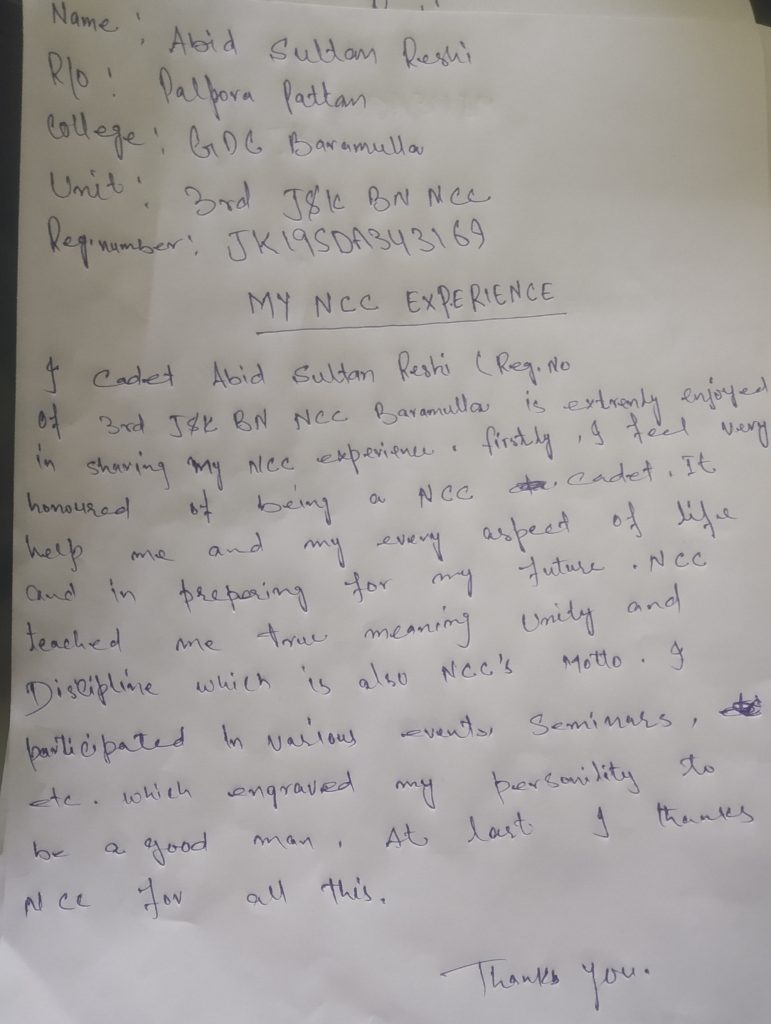 Name : Abid Sultan Reshi
R/o : Palpora Pattan
College : GDC Baramulla
Unit : 3rd J&K BN NCC
Reg. number : JK19SDA343169
MY NCC EXPERIENCE
I Cadet Abid Sultan Reshi (Reg. No
of 3rd J&K BN NCC Baramulla is extremly enjoyed
in sharing my NCC experience. firstly, I feel very
honoured of being a NCC cadet. It
help me and my every aspect of life
and in preparing for my future. NCC
teached me true meaning Unity and
Discipline which is also NCC's Motto. I
participated In various events, Seminars,
etc. which engraved my personility to
be a good man. At last I thanks
NCC for all this.
Thanks you.